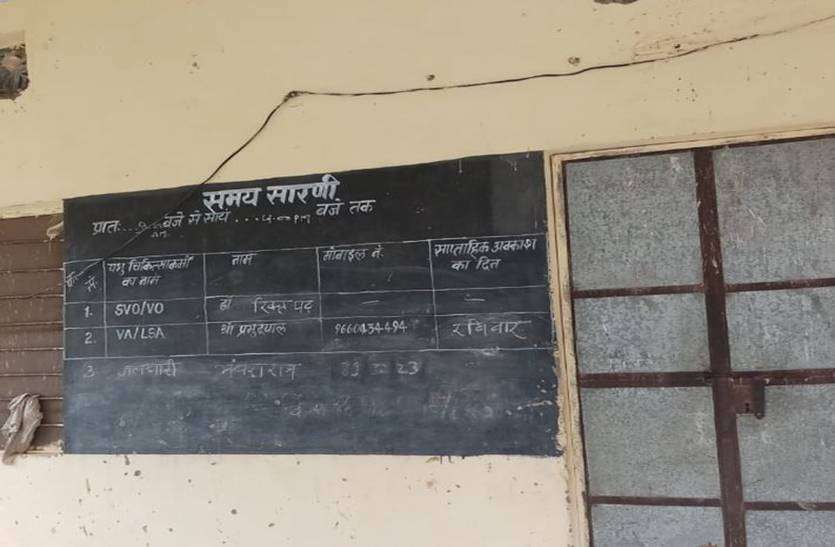 समय सारणी
प्रात:....9.... बजे से सायं ....4.00 PM बजे तक
क्र. सं. पशु चिकित्साकर्मी का नाम नाम मोबाइल नं. साप्ताहिक अवकाश का दिन
1. SVO/VO डॉ रिक्त पद — —
2. VA/LSA श्री 9660434494 रविवार
3 जलधारी